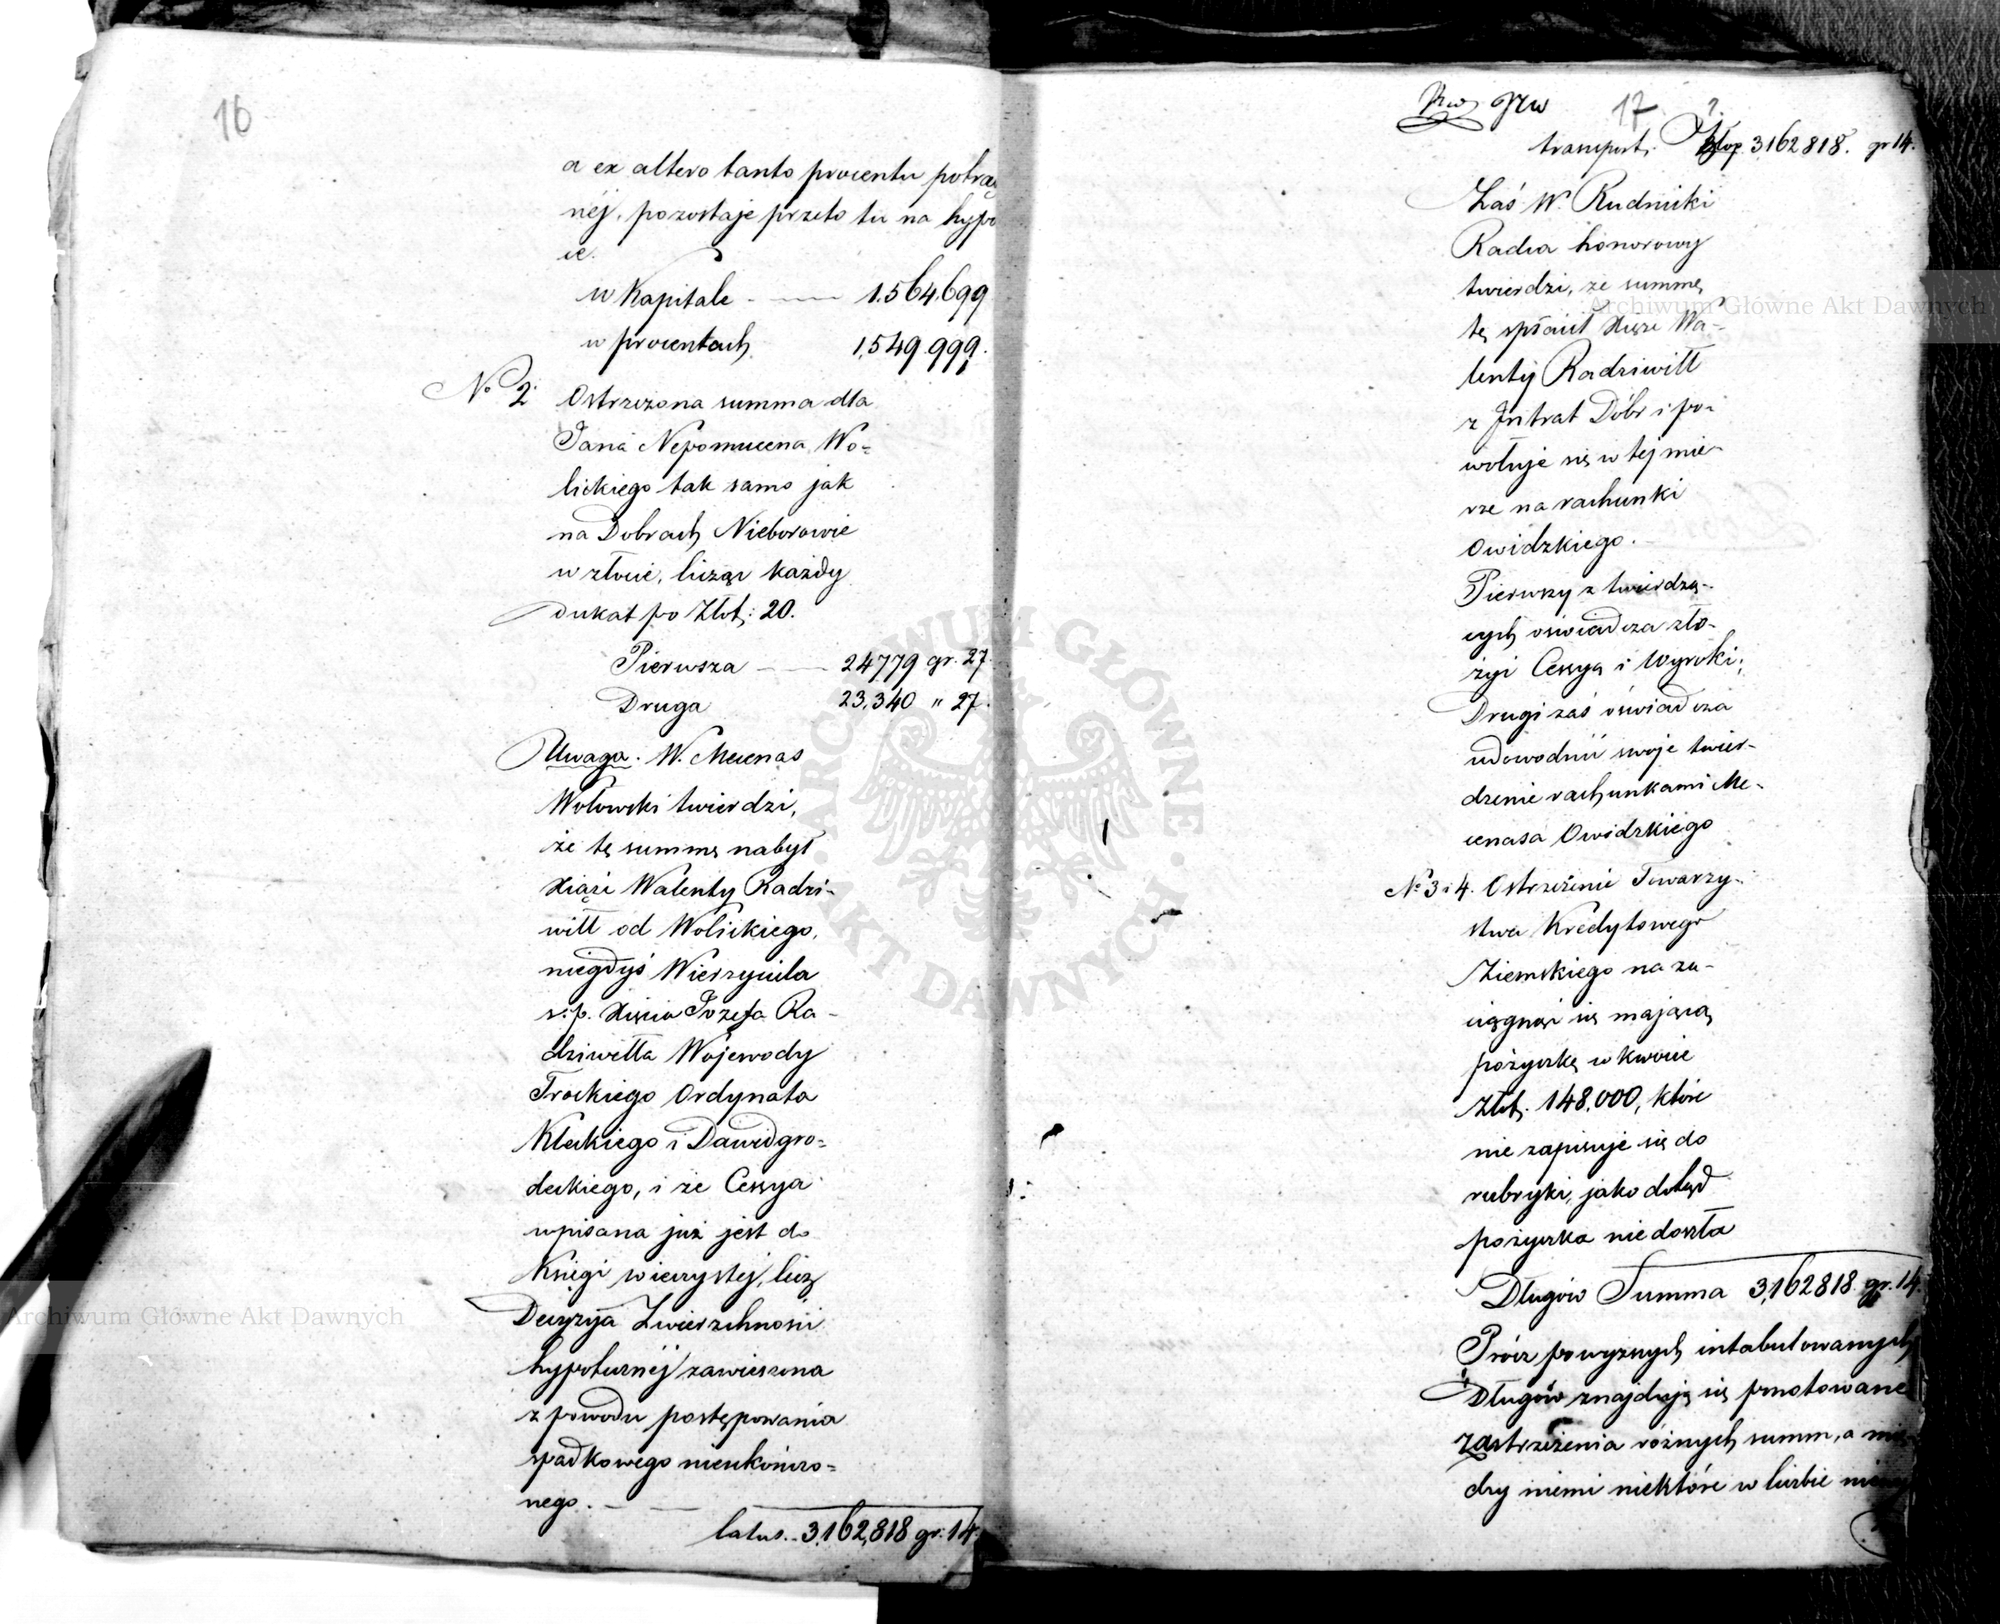 16
a ex altero tanto procentu potrą
néj, pozostaje przeto tu na hypo
ce.
w Kapitale - — 1.564.699
w procentach 1,549.999.
No 2. Ostrzeżona summa dla
Jana Nepomucena Wo-
lickiego tak samo jak
na Dobrach Nieborowie
w złocie, licząc każdy
dukat po Złot: 20.
Pierwsza — — 24779 gr. 27
Druga 23,340 " 27.
Uwaga. W. Mecenas
Wołowski twierdzi,
że tę summę nabył
Xiąże Walenty Radzi-
wiłł od Wolickiego,
niegdyś Wierzyciela
s.p. Xięcia Józefa Ra-
dziwiłła Wojewody
Trockiego Ordynata
Kleckiego i Dawidgro-
deckiego, i że Cessya
wpisana już jest do
Księgi wieczystej, lecz
Decyzya Zwierzchności
hypotecznéj zawieszona
z powodu postępowania
spadkowego nieukończo-
nego. — —
latus. 3,162,818 gr. 14.
17
transport. Złop. 3,162818. gr 14.
Zaś W. Rudnicki
Radca honorowy
twierdzi, że summę
tę spłacił Xiąże Wa-
lenty Radziwiłł
z Intrat Dóbr i po-
wołuje się w tej mie-
rze na rachunki
Owidzkiego.
Pierwszy z twierdzą-
cych oświadcza zło-
żyć Cessyą i Wyroki;
Drugi zaś oświadcza
udowodnić swoje twier-
dzenie rachunkami Me-
cenasa Owidzkiego
No 3 i 4. Ostrzeżenie Towarzy-
stwa Kredytowego
Ziemskiego na za-
ciągnąć się mającą
pożyczkę w kwocie
Złot. 148.000, które
nie zapisuje się do
rubryki, jako dotąd
pożyczka nie doszła
Długów Summa 3,162818 gr. 14.
Prócz powyższych intabulowanych
Długów znajdują się prnotowane
zastrzeżenia różnych summ, a mię-
dzy niemi niektóre w liczbie
Archiwum Główne Akt Dawnych
Archiwum Główne Akt Dawnych
ARCHIWUM GŁÓWNE · AKT DAWNYCH ·